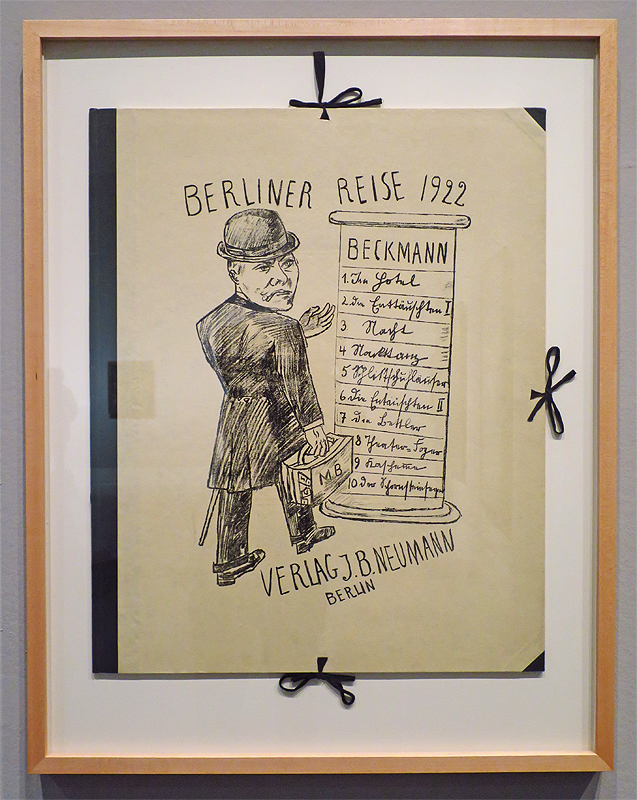 BERLINER REISE 1922
BECKMANN
1. Im Hotel
2. die Enttäuschten I
3 Nacht
4 Nackttanz
5 Schlittschuhläufer
6. die Entäuschten II
7 die Bettler
8 Theater=Foyer
9 Kascheme
10 der Schornsteinfege
M B
VERLAG J. B. NEUMANN
BERLIN